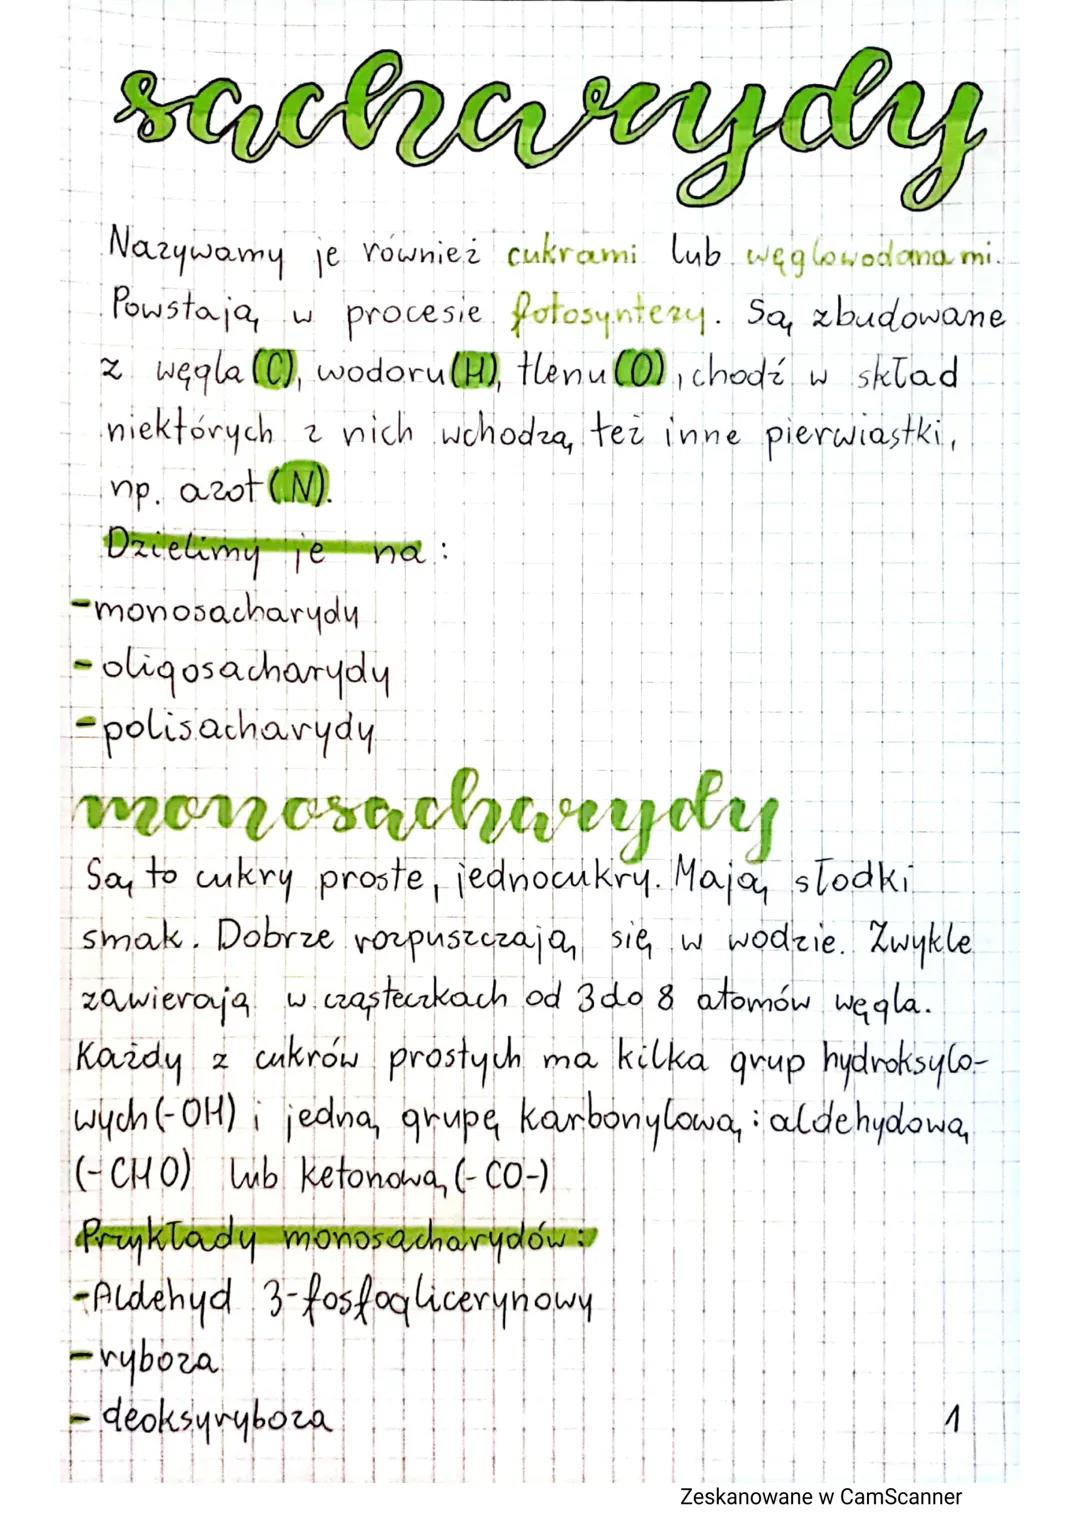 sacharydy
Nazywamy je również cukrami lub węglowodanami.
Powstają w procesie fotosyntezy. Są zbudowane
z węgla (C), wodoru (H), tlenu (O), chodź w skład
niektórych z nich wchodzą też inne pierwiastki,
np. azot (N).
Dzielimy je na:
-monosacharydy
-oligosacharydy
-polisacharydy
monosacharydy
Są to cukry proste, jednocukry. Mają słodki
smak. Dobrze rozpuszczają się w wodzie. Zwykle
zawierają w cząsteczkach od 3 do 8 atomów węgla.
Każdy z cukrów prostych ma kilka grup hydroksylo-
wych (-OH) i jedną grupę karbonylową: aldehydową
(-CHO) lub ketonową (-CO-)
Przykłady monosacharydów:
-Aldehyd 3-fosfoglicerynowy
-ryboza
-deoksyryboza
1
Zeskanowane w CamScanner